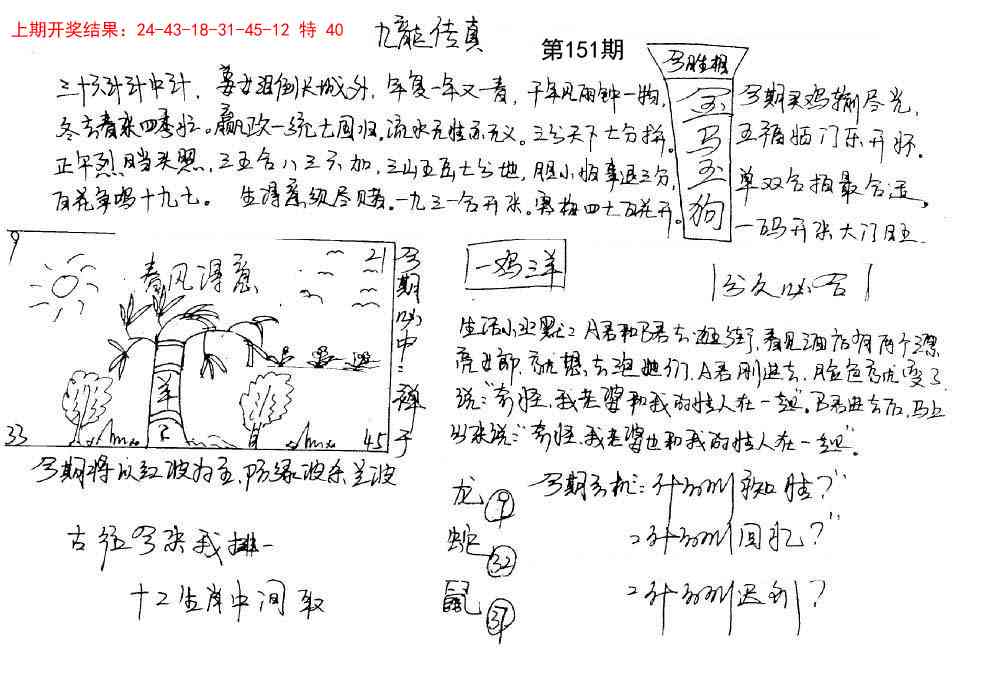 上期开奖结果：24-43-18-31-45-12 特 40
九龍传真
第151期
三十六计计中计，姜女泪倒长城外，年复一年又一春，千年风雨钟一物，
冬去春来四季红。嬴政一统七国归，流水无性亦无义。三分天下七分拼。
正午烈日当头照，三五合八三六加，三山五岳七分地，胆小怕事退三分，
百花争鸣十九七。 生得意须尽欢。一九三一合开来。寒梅四七百花开。
今期买鸡输尽光，
五福临门乐开怀。
单双合报最合适。
一码开来大门旺
金
马
玉
狗
9
21
春风得意
羊
33
45
今期必中：禅子
一鸡三羊
分久必合
生活小幽默：A君和B君去逛街，看见酒店有两个漂
亮女郎，就想去泡她们，A君刚进去，脸色就变了
说："奇怪，我老婆和我的情人在一起"。B君进去后，马上
出来说："奇怪，我老婆也和我的情人在一起"。
今期将以红波为主，防绿波杀兰波
龙 9
蛇 32
鼠 37
今期玄机：什么叫
二什么叫回忆？"
二什么叫
古径今来我排一
十二生肖中间取